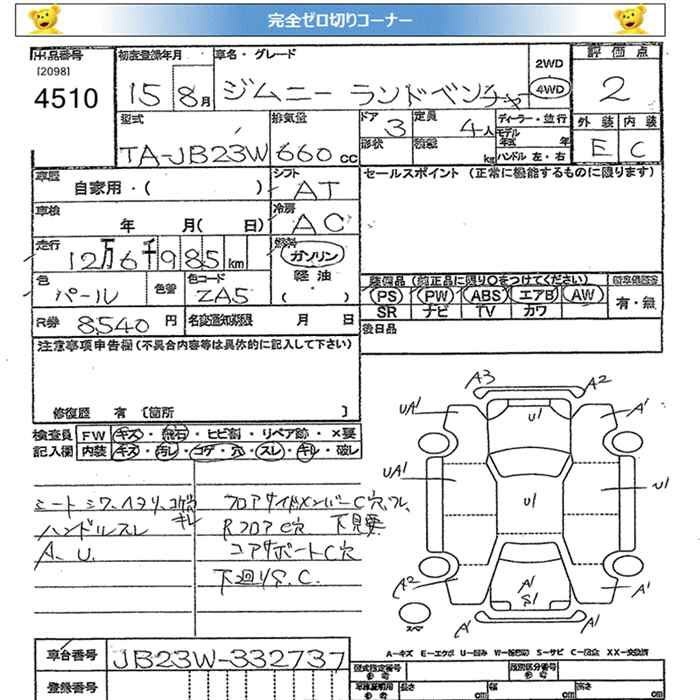 完全ゼロ切りコーナー
出品番号
[2098]
4510
初度登録年月
15 8月
車名・グレード
ジムニー ランドベンチャー
2WD
4WD
評価点
2
外装 内装
E C
型式
TA-JB23W
排気量
660 cc
ドア
3
定員
4人
形状
積載
kg
ディーラー・並行
モデル
年式 年
ハンドル 左・右
車歴
自家用・( )
シフト
AT
セールスポイント (正常に機能するものに限ります)
車検
年 月( 日)
冷房
AC
走行
12万6千985 km
燃料
ガソリン
軽油
( )
色
パール
色替
色コード
ZA5
装備品 (純正品に限り○をつけてください)
PS PW ABS エアB AW
SR ナビ TV カワ
有・無
R券 8,540 円
名変通知期限 月 日
後日品
注意事項申告欄 (不具合内容等は具体的に記入して下さい)
修復歴 有 [箇所 ]
検査員 FW キズ・飛石・ヒビ割・リペア跡・×要
記入欄 内装 キズ・汚レ・コゲ・穴・スレ・キレ・破レ
シートシワ、ヘタリ、コゲ穴
キレ
ハンドルスレ
A、U.
フロアサイドメンバーC穴、フレ、
RフロアC穴 下見要
コアサポートC穴
下廻りS.C.
A3 A2
UA1 U1 A1
UA1 U1 U1
A2 A1 S1 A1
A1 A1
スペア
A-キズ E-エクボ U-凹み W-補修跡 S-サビ C-腐食 XX-交換済
車台番号 JB23W-332737
登録番号
型式指定番号
参考
類別区分番号
参考
車検証明用
参考
長さ cm
幅 cm
高さ cm